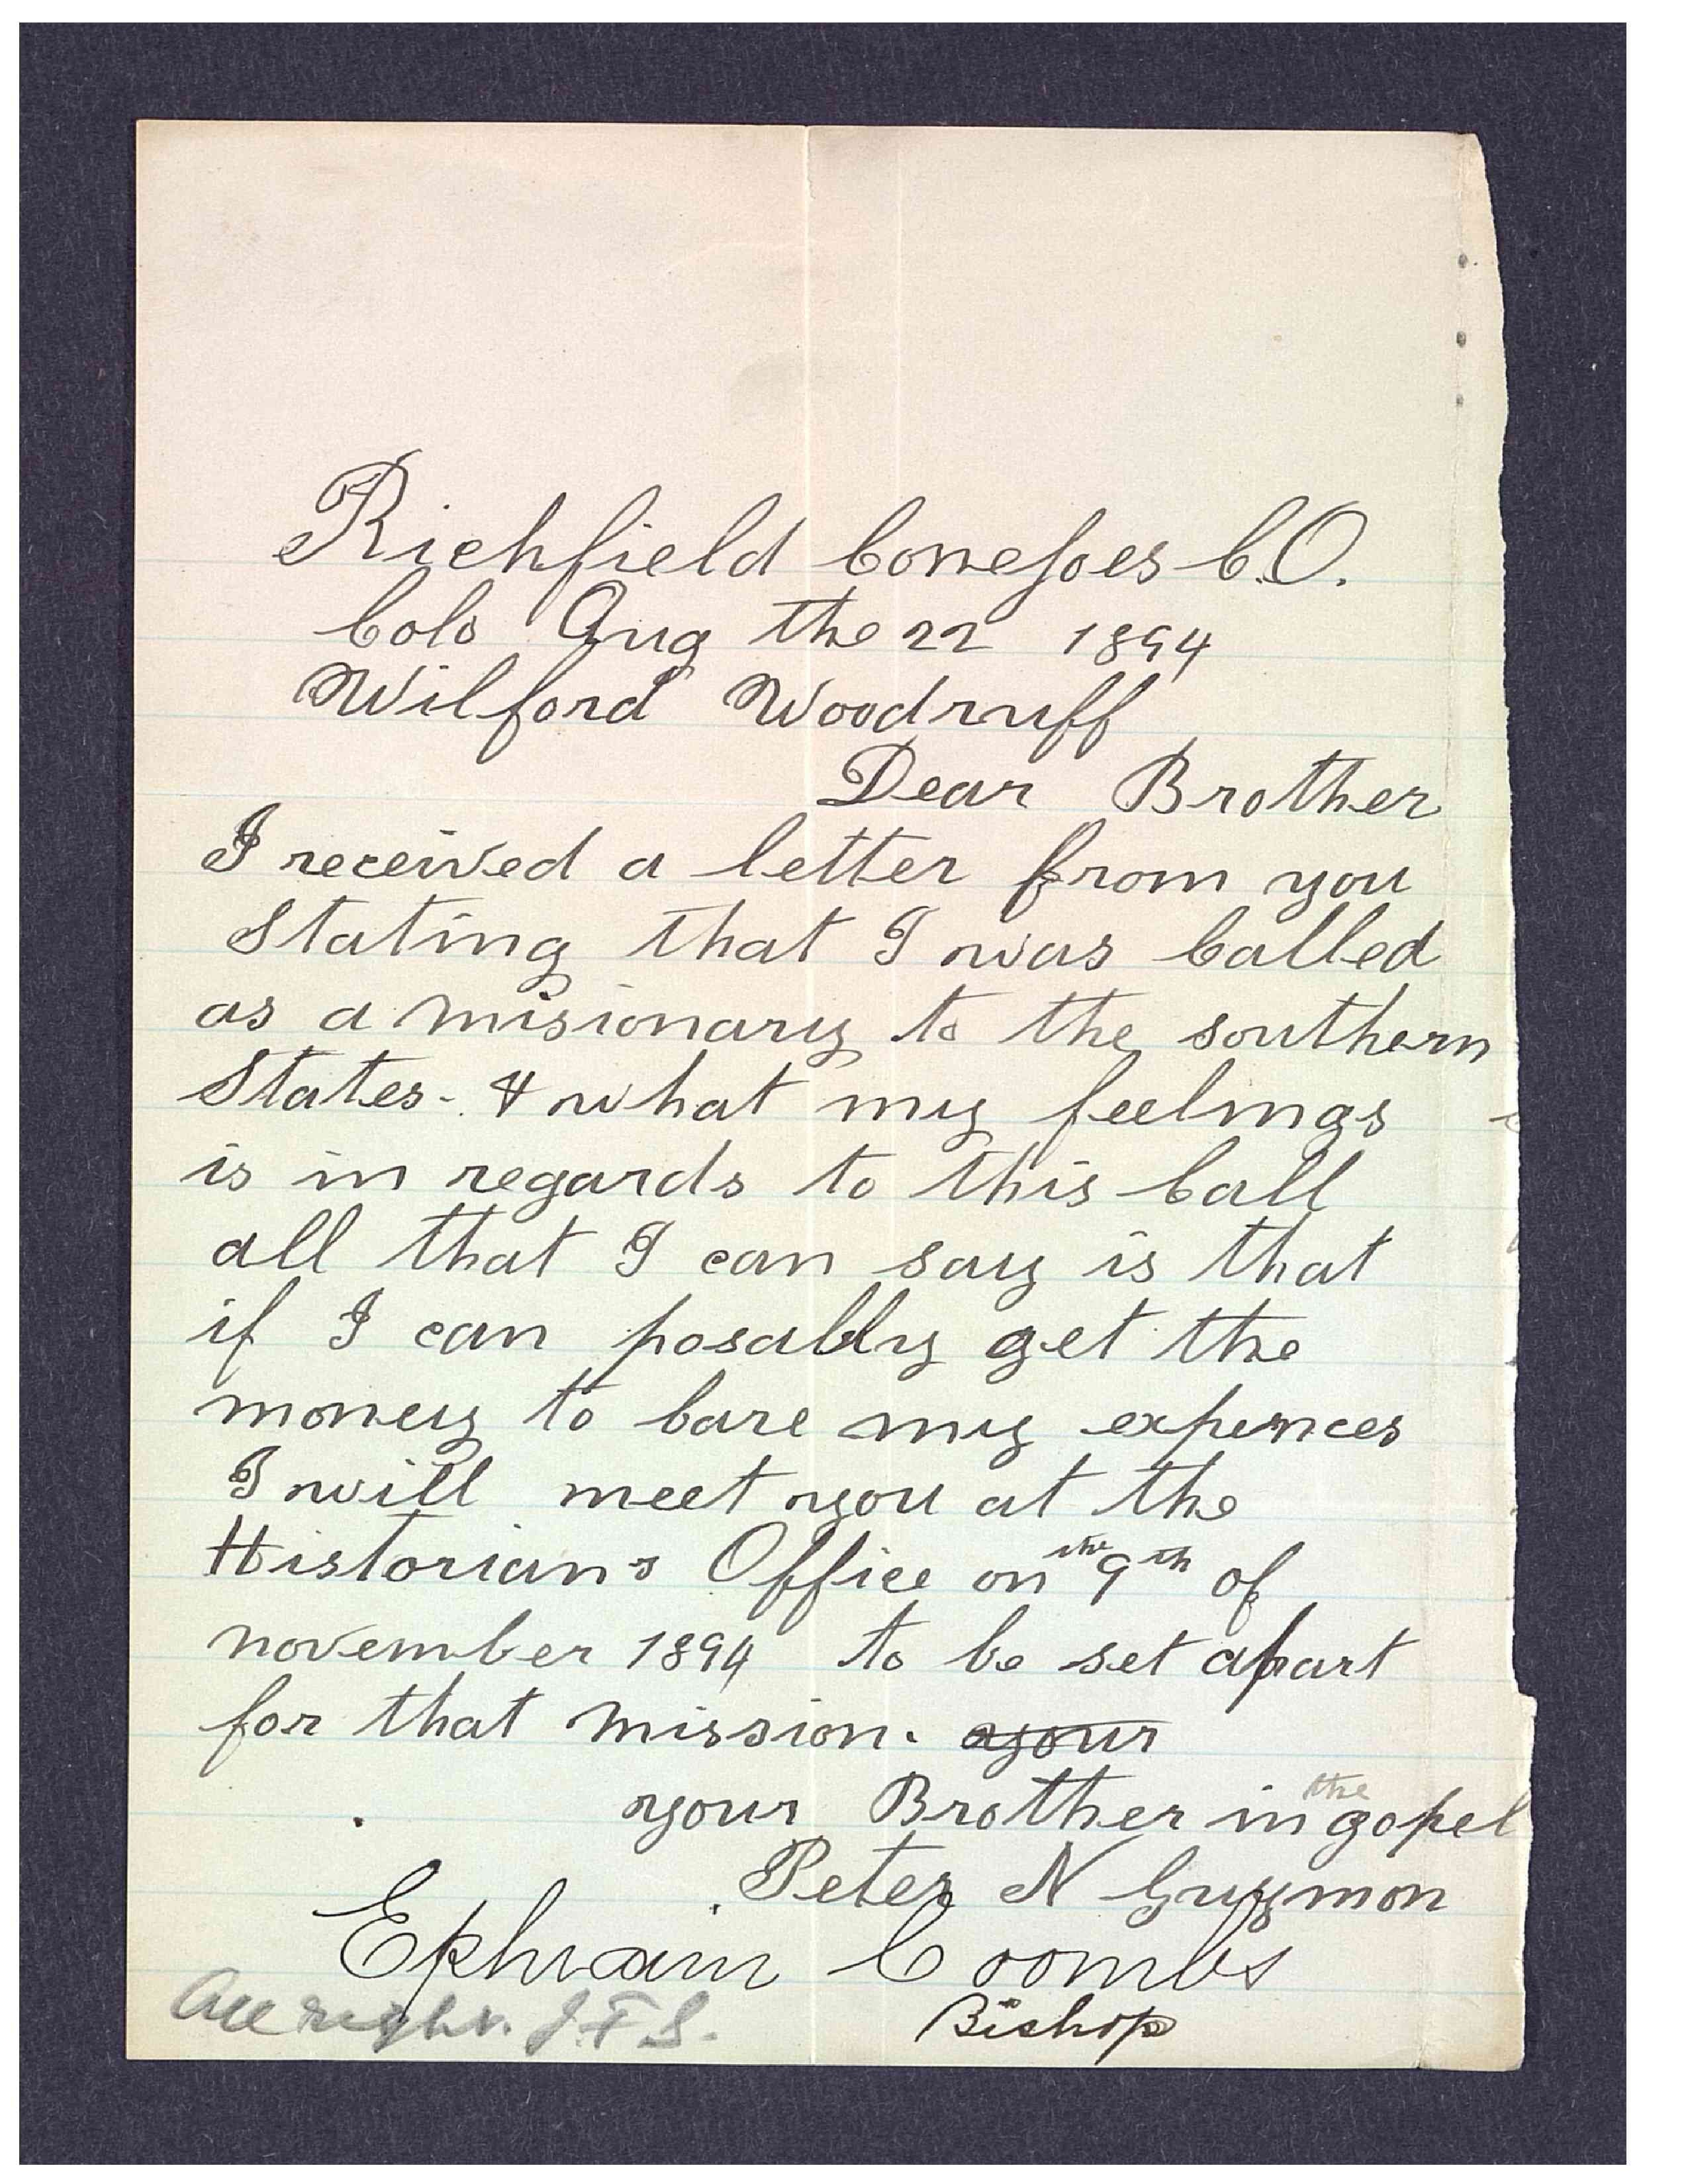 Richfield Conejoes C.O.
Colo Aug the 22 1894
Wilford Woodruff
Dear Brother
I received a letter from you
stating that I was Called
as a misionary to the southern
States - & what my feelings
is in regards to this Call
all that I can say is that
if I can posablly get the
money to bare my expences
I will meet you at the
Historians Office on the 9th of
november 1894 to be set apart
for that mission. your
your Brother in the gopel
Peter N Guymon
Ephraim Coombs
Bishop
All right. J. F. S.